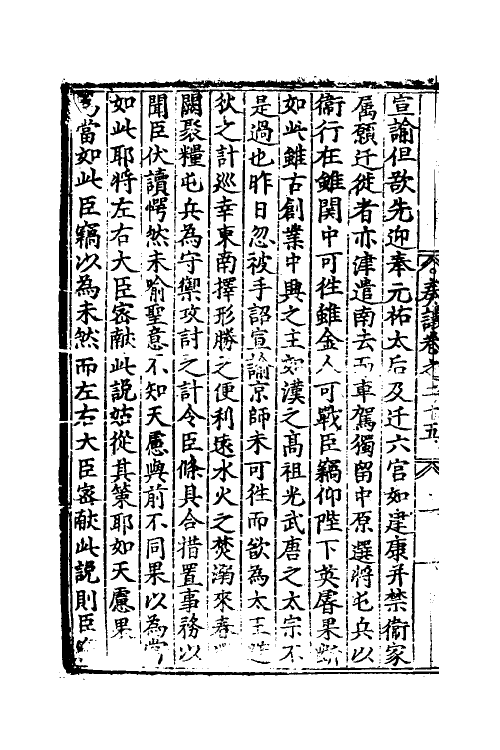 奏議卷之二十五
宣諭但欲先迎奉元祐太后及迁六官如建康并禁衞家
属願迁徙者亦津遣南去而車駕獨留中原選將屯兵以
衞行在雖関中可徃雖金人可戰臣竊仰陛下英睿果斷
如此雖古創業中興之主如漢之髙祖光武唐之太宗不
是過也昨日忽被手詔宣諭京師未可徃而欲為太王避
狄之計巡幸東南擇形勝之便利逺水火之焚溺來春
闕聚糧屯兵為守禦攻討之計令臣條具合措置事務以
聞臣伏讀愕然未喻聖意不知天慮與前不同果以為當
如此耶将左右大臣宻献此説姑從其策耶如天慮果
為當如此臣竊以為未然而左右大臣宻献此説則臣